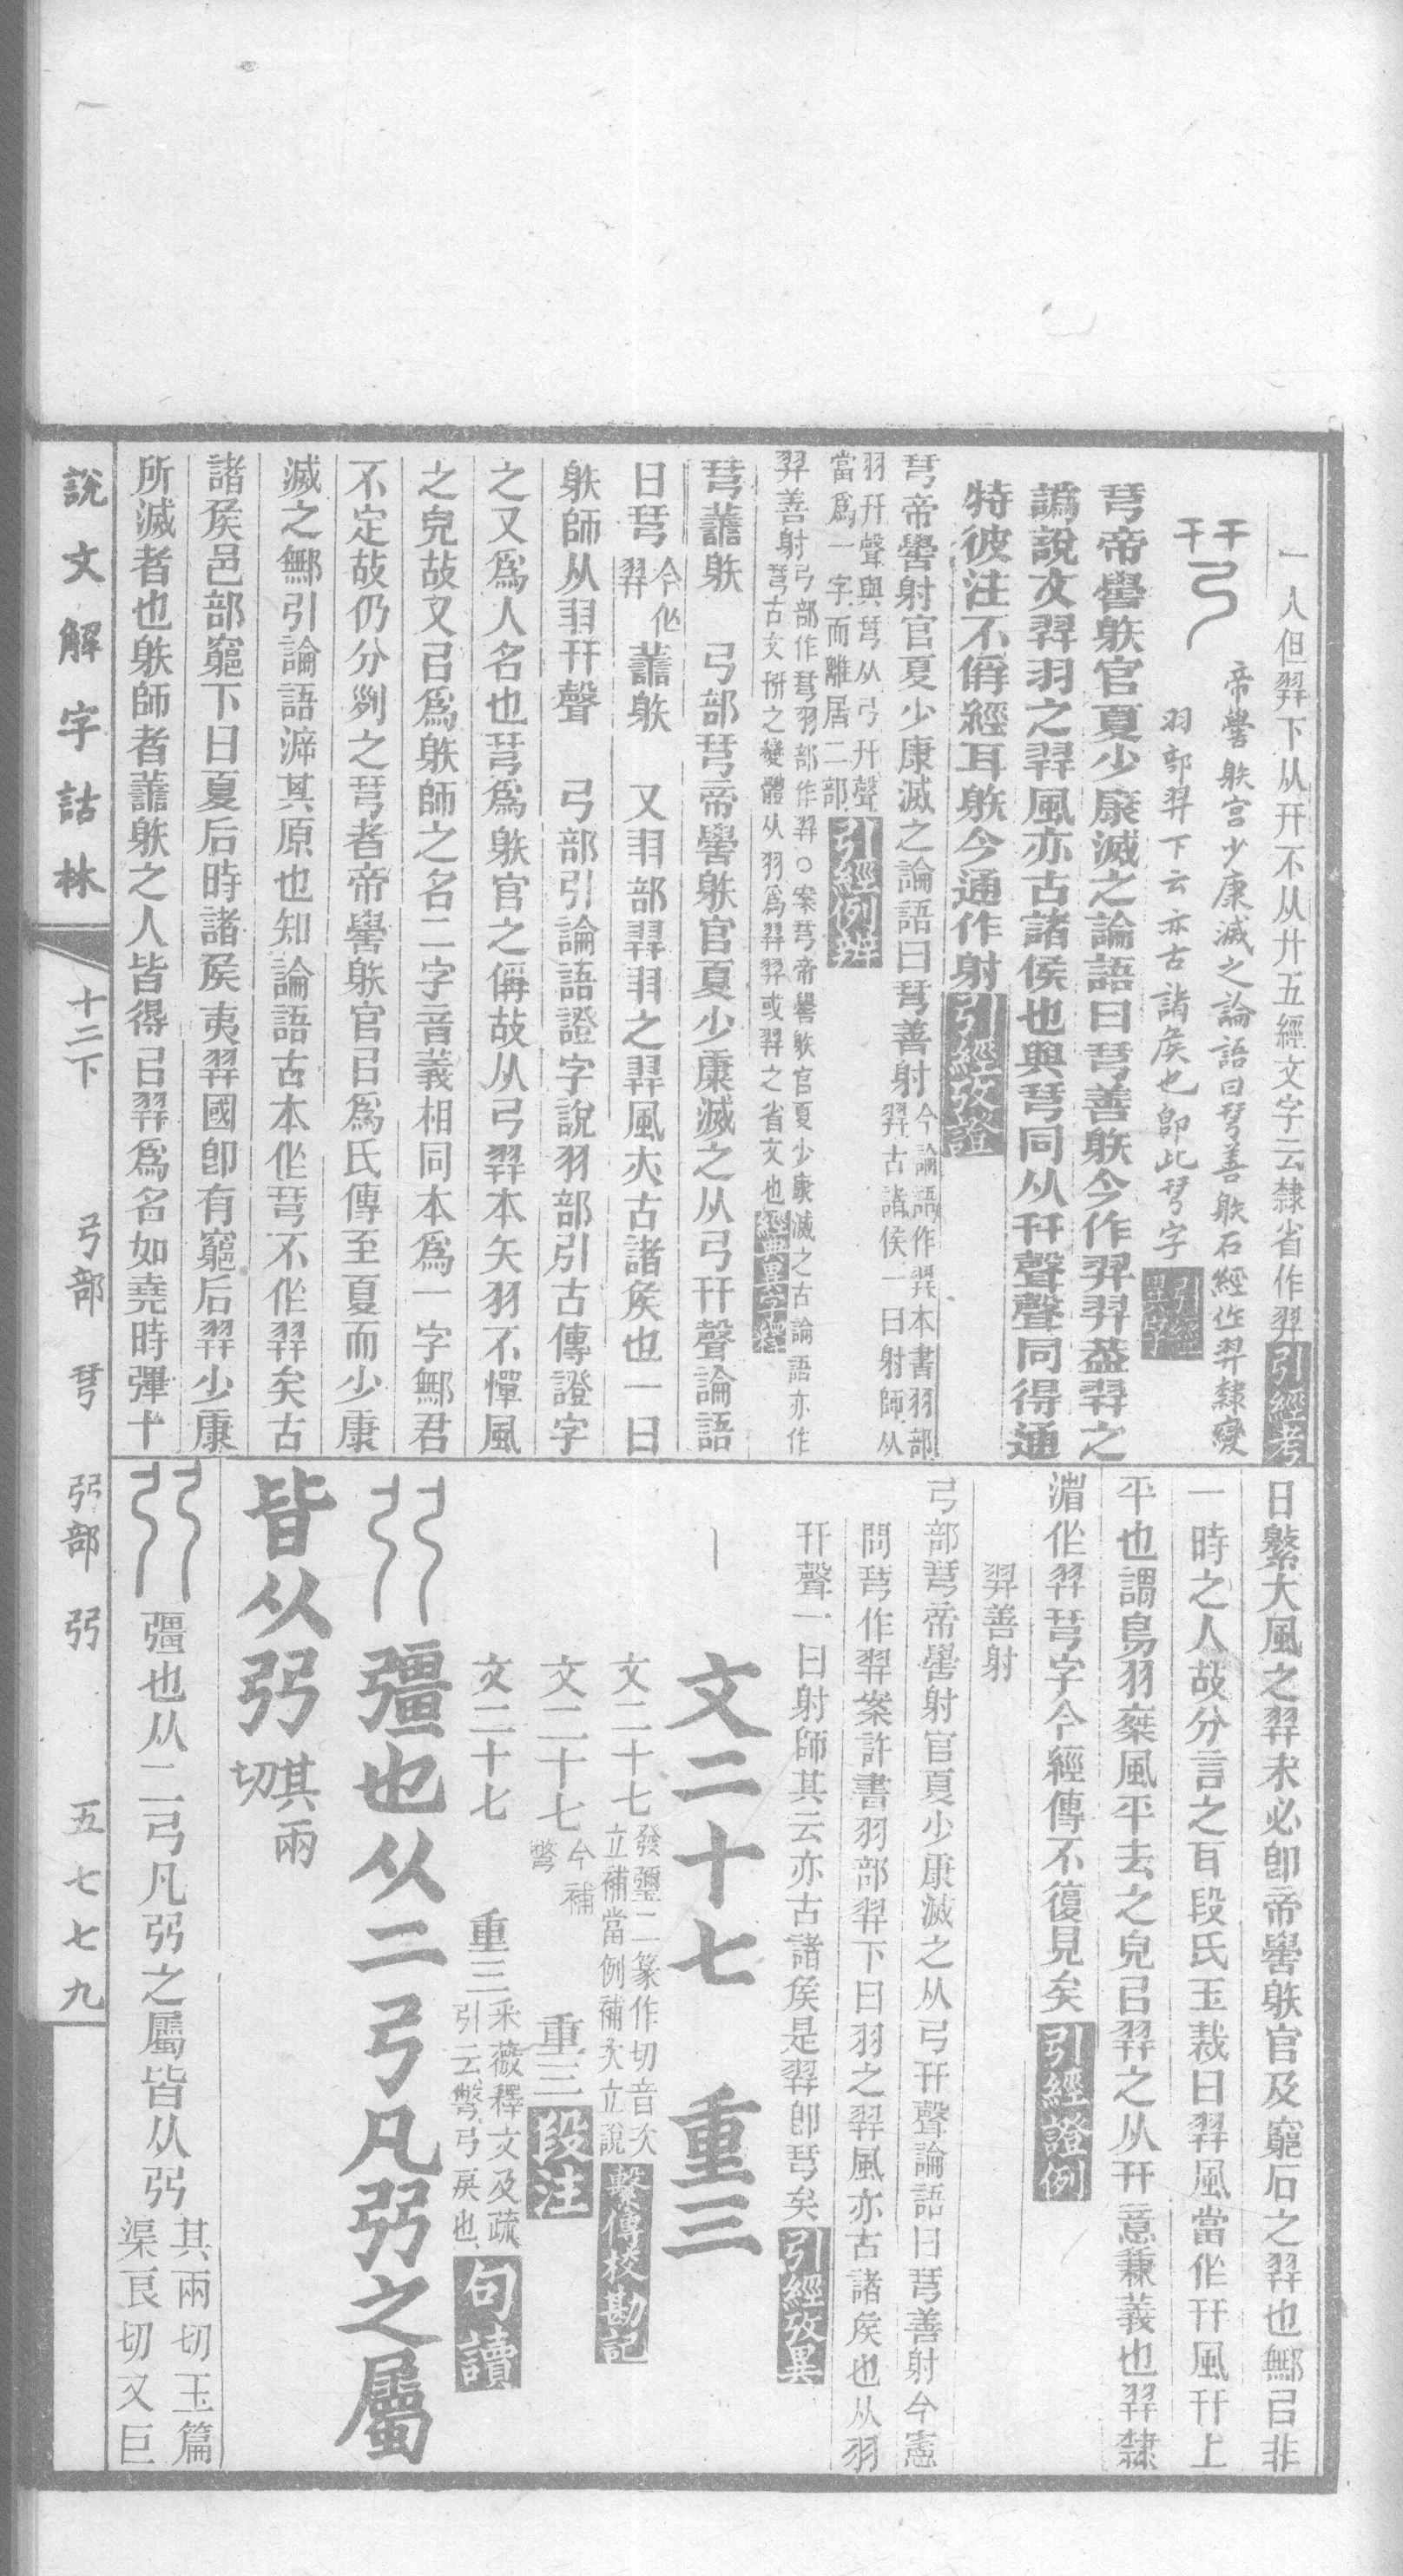 一人但羿下从幵不从廾五經文字云隸省作羿引經考
𢏗
帝嚳䠶官少康滅之論語曰𢏗善䠶石經作羿隸變
羽部羿下云亦古諸矦也卽此𢏗字引經異字
𢏗帝嚳䠶官夏少康滅之論語曰𢏗善䠶今作羿羿葢羿之
譌說文羿羽之羿風亦古諸侯也與𢏗同从幵聲聲同得通
特彼注不偁經耳䠶今通作射引經攷證
𢏗帝嚳射官夏少康滅之論語曰𢏗善射今論語作羿本書羽部
羿古諸侯一曰射師从
羽幵聲與𢏗从弓幵聲
當爲一字而離居二部引經例辨
羿善射弓部作𢏗羽部作羿○案𢏗帝嚳䠶官夏少康滅之古論語亦作
𢏗古文之變體从羽爲羿羿或羿之省文也經典異字釋
𢏗善䠶　弓部𢏗帝嚳䠶官夏少康滅之从弓幵聲論語
曰𢏗今作羿善䠶　又羽部羿羽之羿風亦古諸矦也一曰
䠶師从羽幵聲　弓部引論語證字說羽部引古傳證字
之又爲人名也𢏗爲䠶官之偁故从弓羿本矢羽不憚風
之皃故又㠯爲䠶師之名二字音義相同本爲一字鄦君
不定故仍分列之𢏗者帝嚳䠶官㠯爲氏傳至夏而少康
滅之鄦引論語㴑其原也知論語古本作𢏗不作羿矣古
諸矦邑部竆下曰夏后時諸矦夷羿國卽有竆后羿少康
所滅者也䠶師者善䠶之人皆得㠯羿爲名如堯時彈十
日繳大風之羿未必卽帝嚳䠶官及竆石之羿也鄦㠯非
一時之人故分言之耳段氏玉裁曰羿風當作幵風幵上
平也謂鳥羽桀風平去之皃㠯羿之从幵意兼義也羿隸
渻作羿𢏗字今經傳不復見矣引經證例
羿善射
弓部𢏗帝嚳射官夏少康滅之从弓幵聲論語曰𢏗善射今憲
問𢏗作羿案許書羽部羿下曰羽之羿風亦古諸矦也从羽
幵聲一曰射師其云亦古諸矦是羿卽𢏗矣引經攷異
文二十七　重三
文二十七發彊二篆作切音次
立補當例補次立說繫傳校勘記
文二十七今補彆　重三段注
文二十七　重三采薇釋文及疏
引云彆弓戾也句讀
弜　彊也从二弓凡弜之屬
皆从弜其兩切
弜　彊也从二弓凡弜之屬皆从弜其兩切玉篇
渠良切又巨
說文解字詁林　十二下　弓部　𢏗　弜部　弜　五七七九